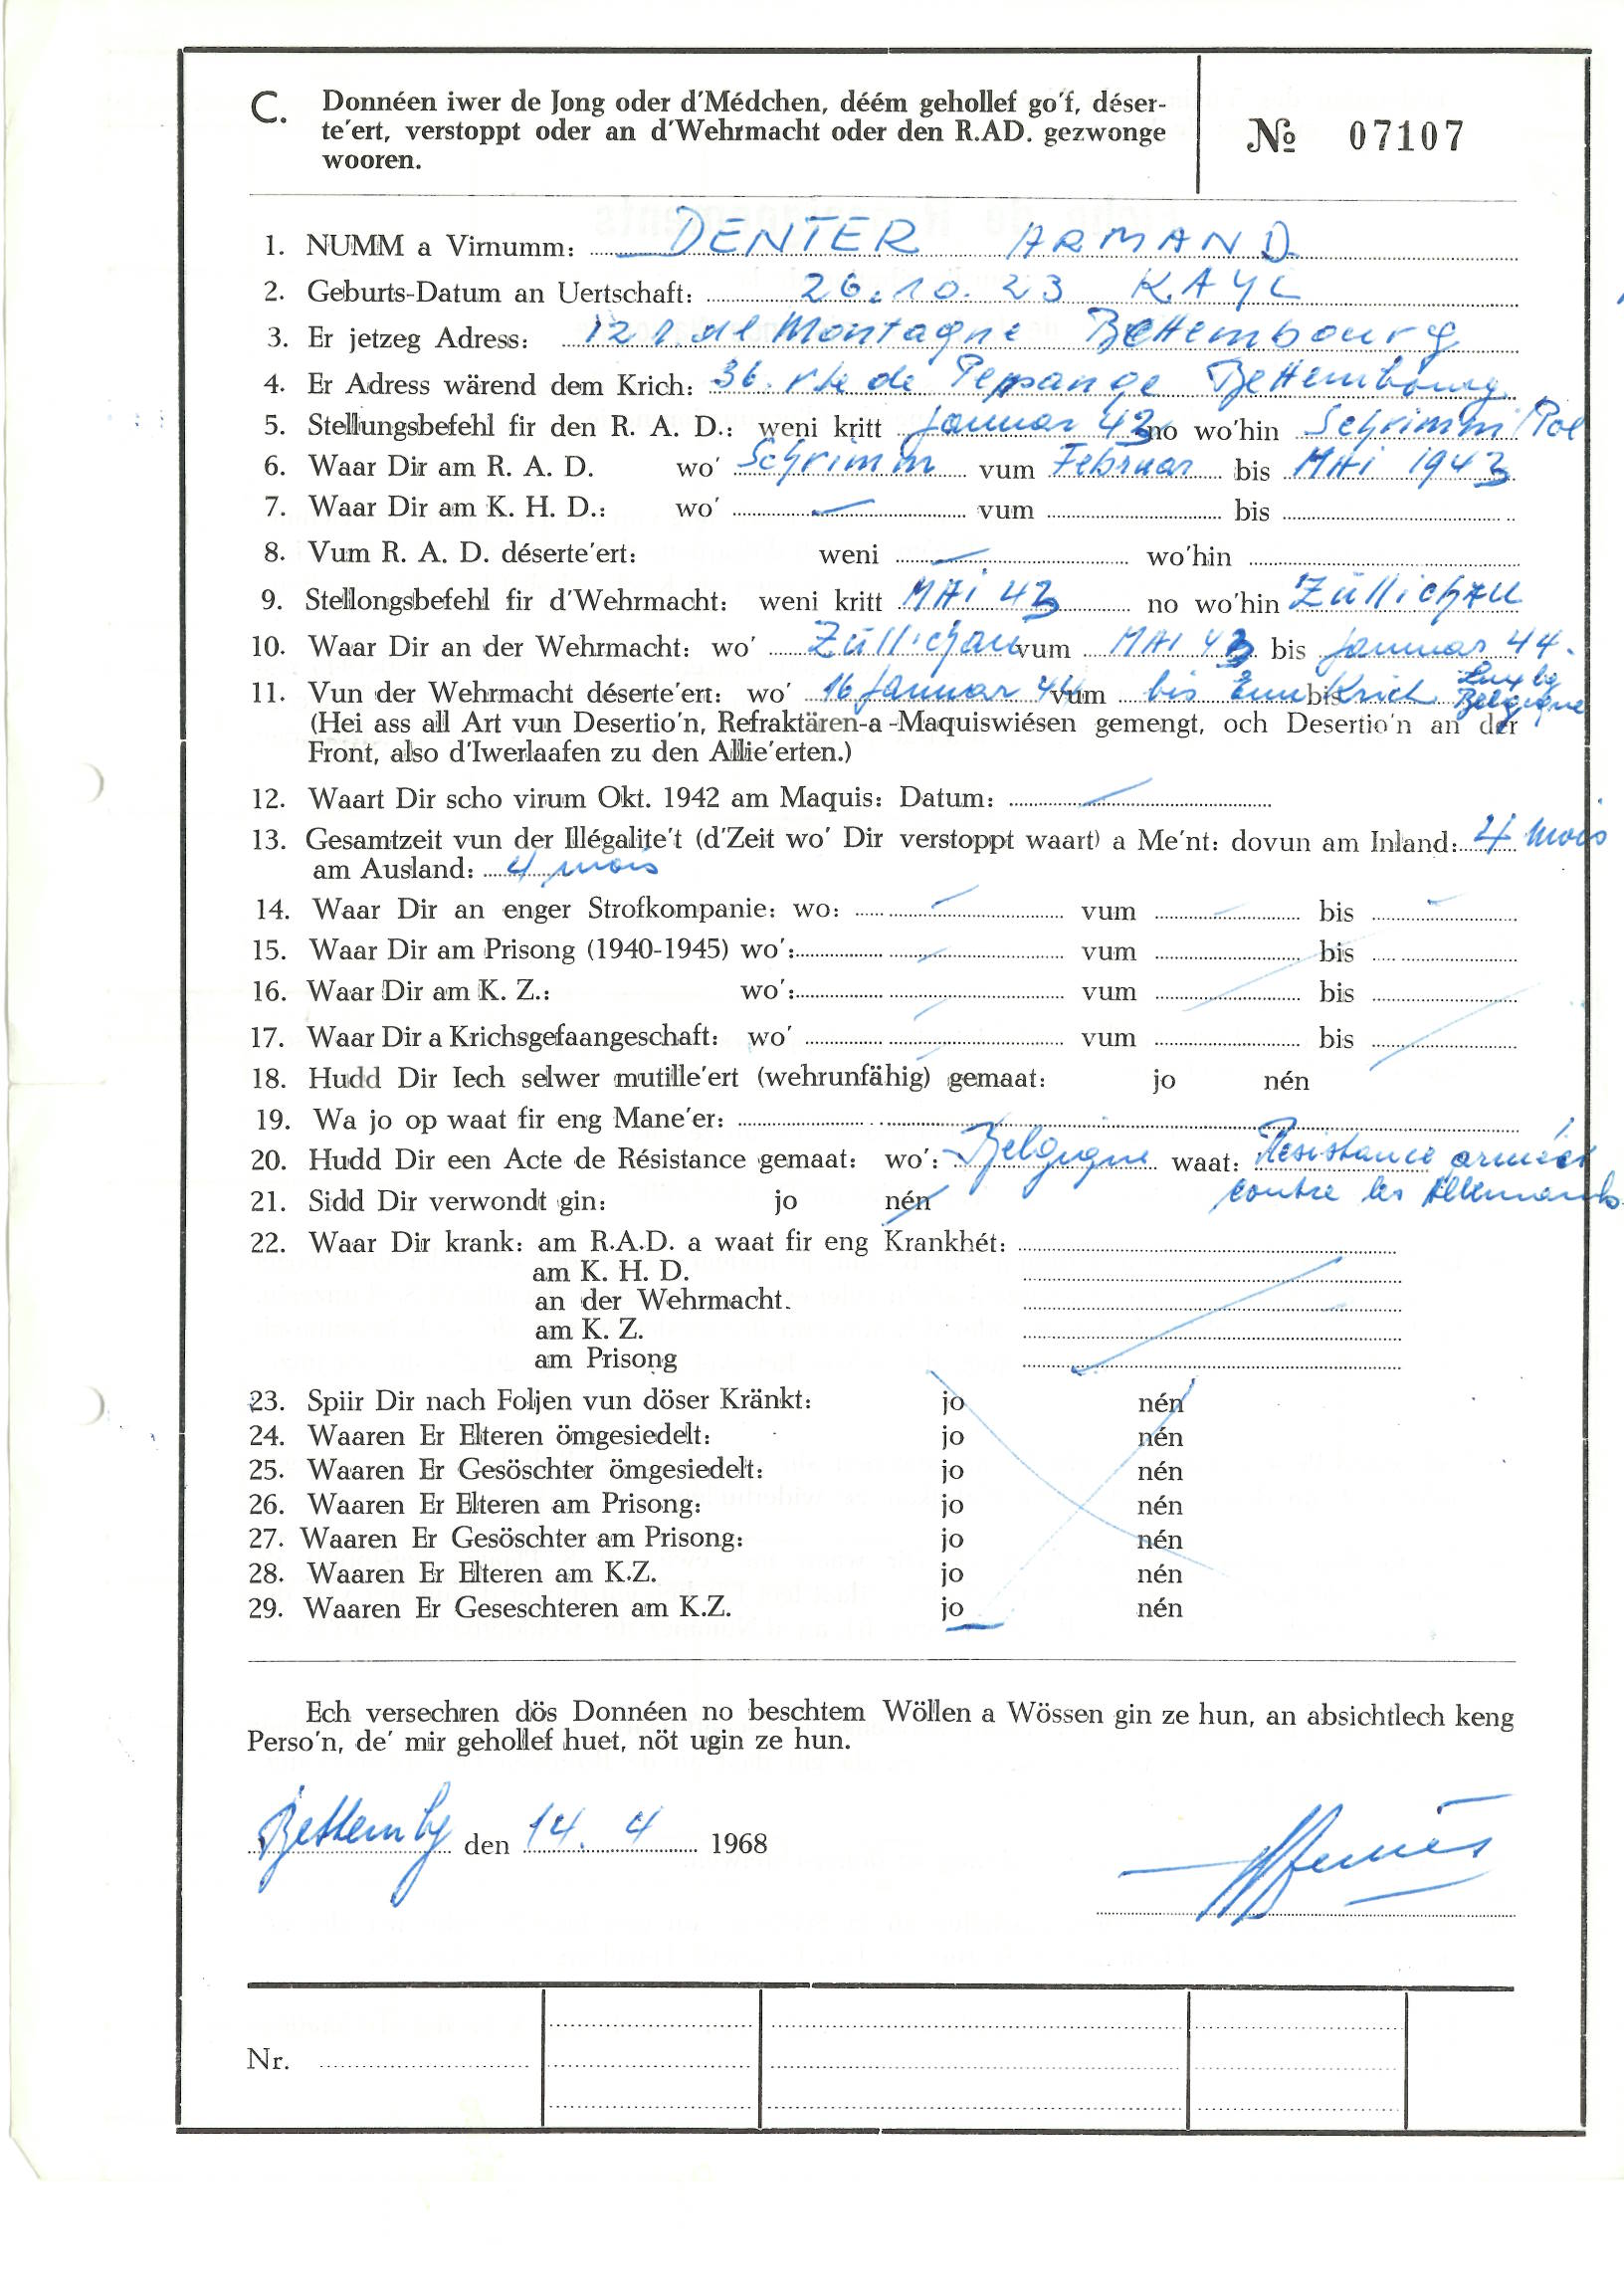 C. Donnéen iwer de Jong oder d'Médchen, déém gehollef go'f, déser-
te'ert, verstoppt oder an d'Wehrmacht oder den R.AD. gezwonge
wooren.
№ 07107
1. NUMM a Virnumm: DENTER ARMAND
2. Geburts-Datum an Uertschaft: 26.10.23 KAYL
3. Er jetzeg Adress: 12 r. de Montagne Bettembourg
4. Er Adress wärend dem Krich: 36. rte de Peppange Bettembourg
5. Stellungsbefehl fir den R. A. D.: weni kritt Januar 43 no wo'hin Schrimm / Pol
6. Waar Dir am R. A. D. wo' Schrimm vum Februar bis MAI 1943
7. Waar Dir am K. H. D.: wo' vum bis
8. Vum R. A. D. déserte'ert: weni wo'hin
9. Stellongsbefehl fir d'Wehrmacht: weni kritt MAI 43 no wo'hin Züllichau
10. Waar Dir an der Wehrmacht: wo' Züllichau vum MAI 43 bis Januar 44.
11. Vun der Wehrmacht déserte'ert: wo' 16 Januar 44 vum bis Enn bis Krich Luxbg Belgique
(Hei ass all Art vun Desertio'n, Refraktären-a-Maquiswiésen gemengt, och Desertio'n an der
Front, also d'Iwerlaafen zu den Allie'erten.)
12. Waart Dir scho virum Okt. 1942 am Maquis: Datum:
13. Gesamtzeit vun der Illégalite't (d'Zeit wo' Dir verstoppt waart) a Me'nt: dovun am Inland: 4 mois
am Ausland: 4 mois
14. Waar Dir an enger Strofkompanie: wo: vum bis
15. Waar Dir am Prisong (1940-1945) wo': vum bis
16. Waar Dir am K. Z.: wo': vum bis
17. Waar Dir a Krichsgefaangeschaft: wo' vum bis
18. Hudd Dir Iech selwer mutille'ert (wehrunfähig) gemaat: jo nén
19. Wa jo op waat fir eng Mane'er:
20. Hudd Dir een Acte de Résistance gemaat: wo': Belgique waat: Résistance armée
contre les Allemands
21. Sidd Dir verwondt gin: jo nén
22. Waar Dir krank: am R.A.D. a waat fir eng Krankhét:
am K. H. D.
an der Wehrmacht.
am K. Z.
am Prisong
23. Spiir Dir nach Foljen vun döser Kränkt: jo nén
24. Waaren Er Elteren ömgesiedelt: jo nén
25. Waaren Er Gesöschter ömgesiedelt: jo nén
26. Waaren Er Elteren am Prisong: jo nén
27. Waaren Er Gesöschter am Prisong: jo nén
28. Waaren Er Elteren am K.Z. jo nén
29. Waaren Er Geseschteren am K.Z. jo nén
Ech versechren dös Donnéen no beschtem Wöllen a Wössen gin ze hun, an absichtlech keng
Perso'n, de' mir gehollef huet, nöt ugin ze hun.
Bettembg den 14. 4 1968
Nr.